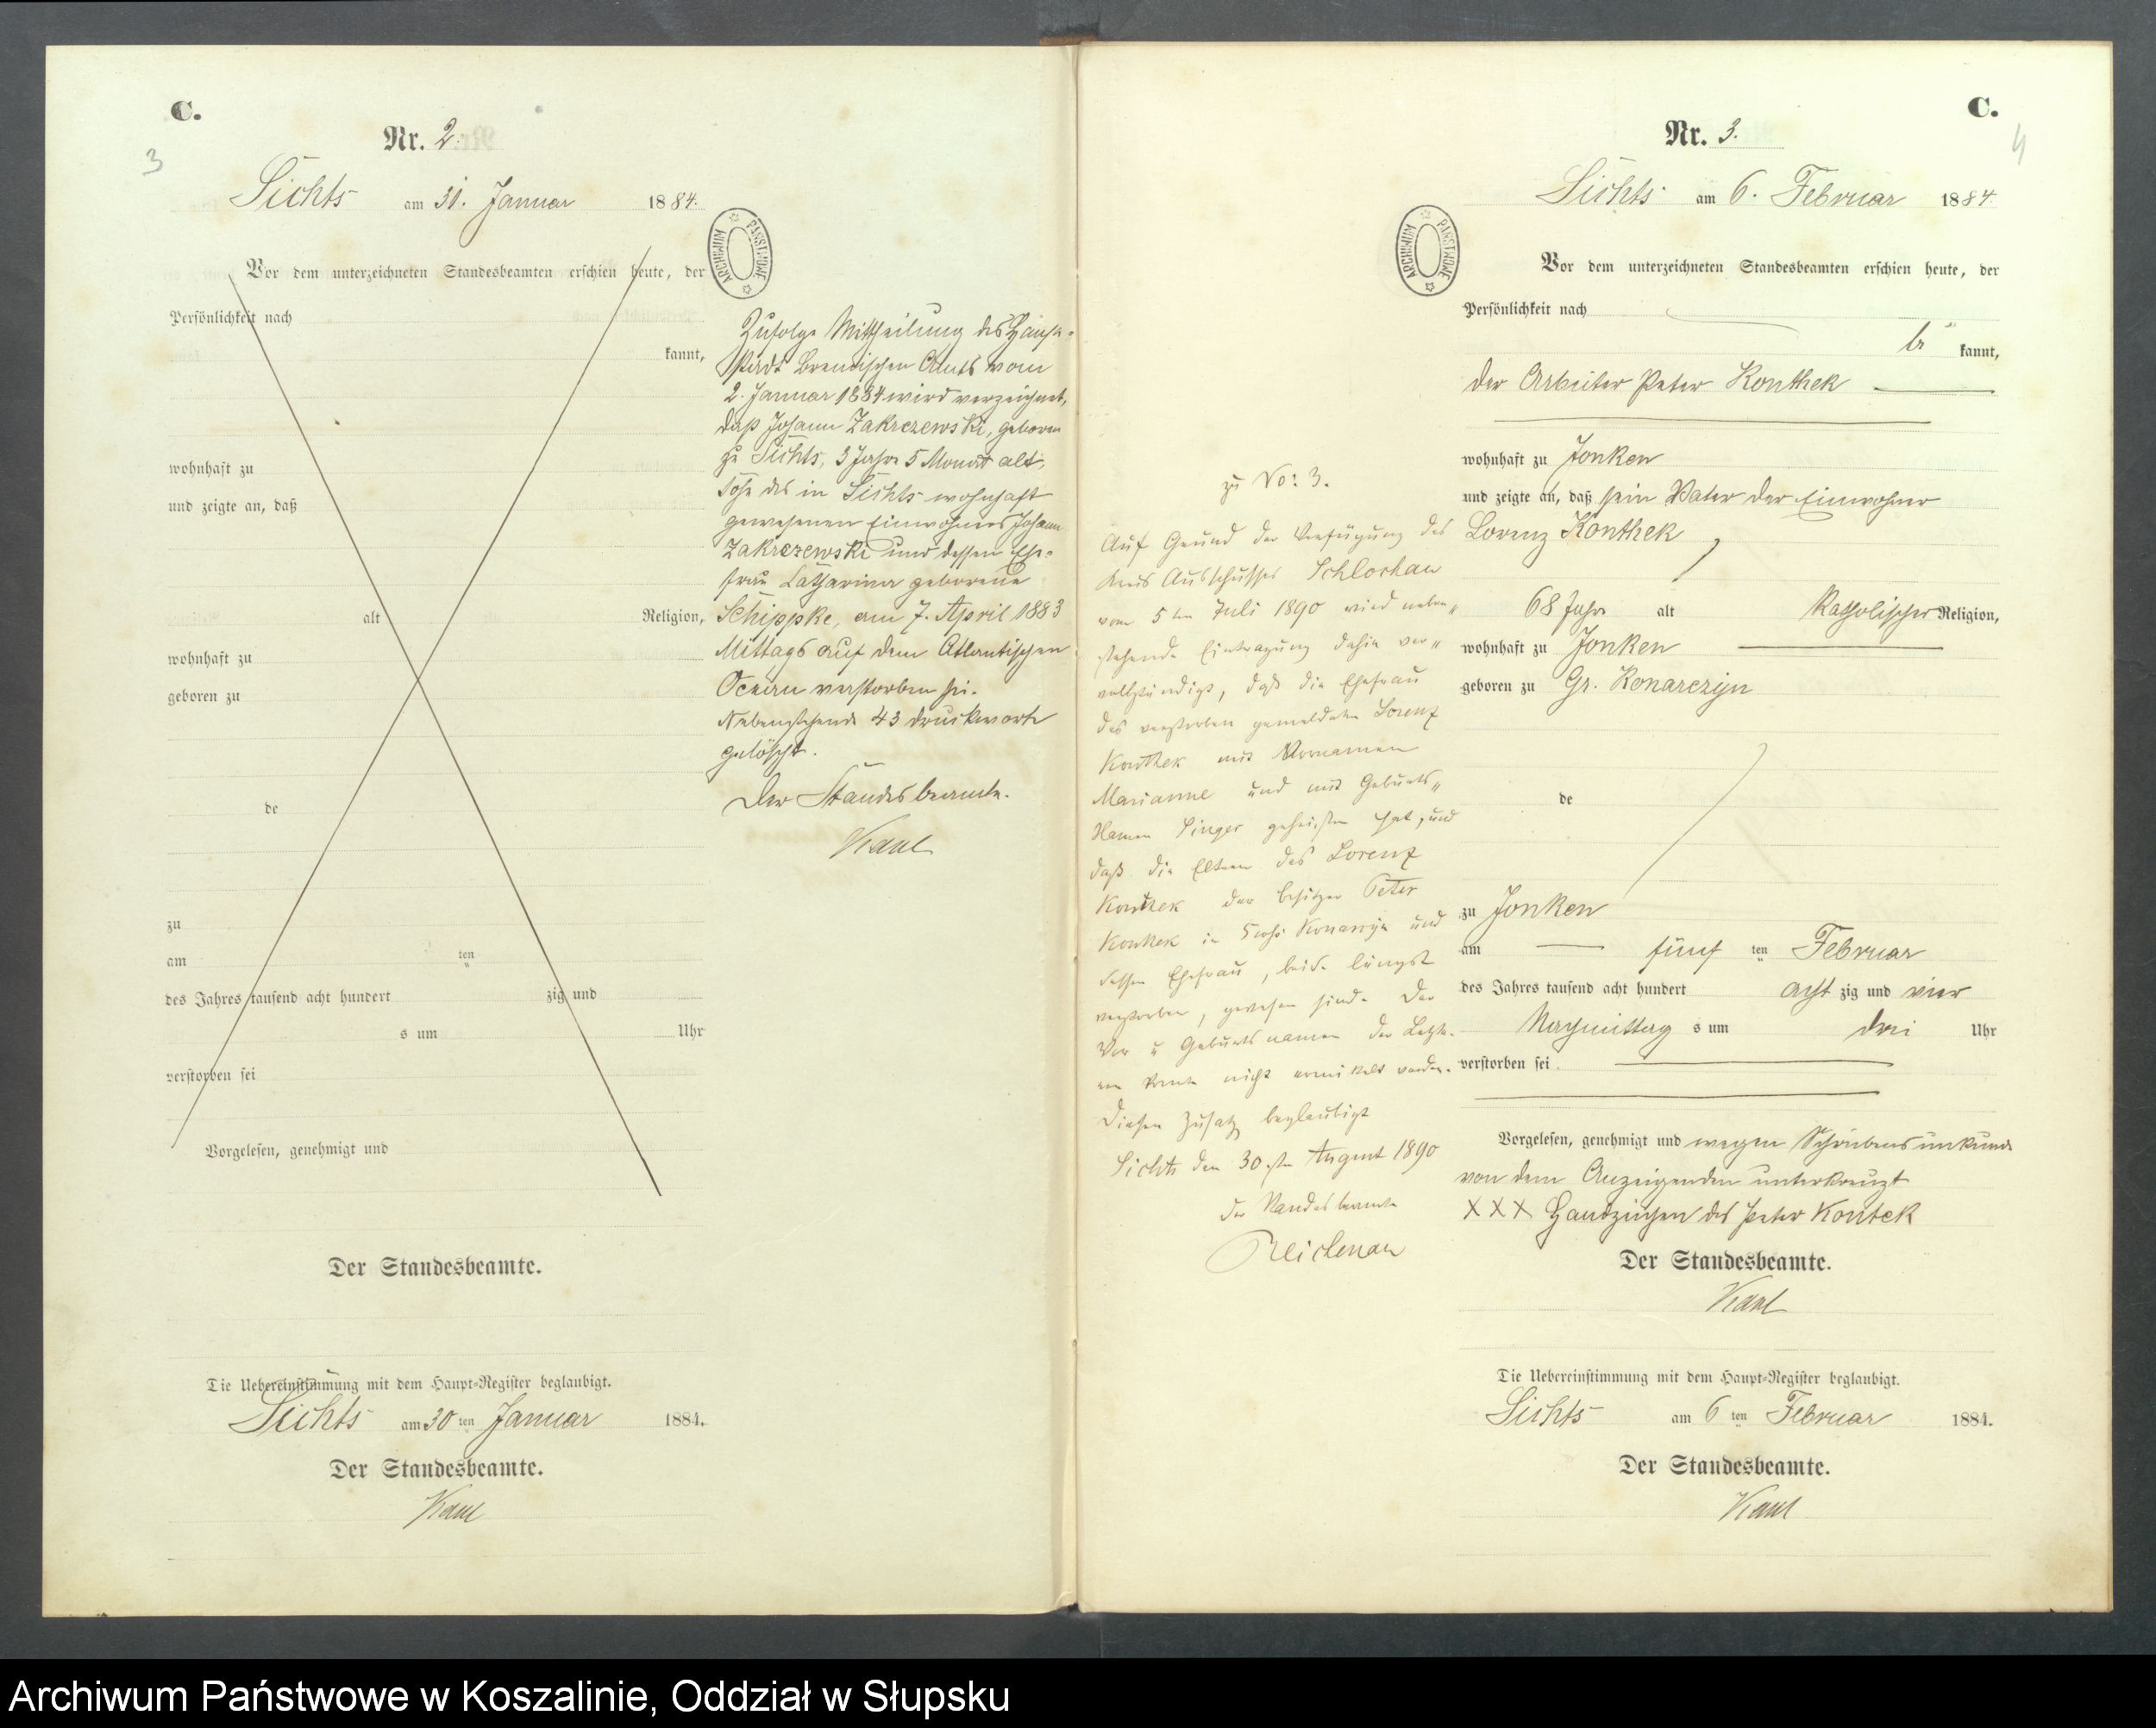 C.
Nr. 2.
3
Sichts am 31. Januar 1884.
Vor dem unterzeichneten Standesbeamten erschien heute, der
Persönlichkeit nach
kannt,
wohnhaft zu
und zeigte an, daß
alt Religion,
wohnhaft zu
geboren zu
de
zu
am ten
des Jahres tausend acht hundert zig und
s um Uhr
verstorben sei
Vorgelesen, genehmigt und
Der Standesbeamte.
Die Uebereinstimmung mit dem Haupt-Register beglaubigt.
Sichts am 30 ten Januar 1884.
Der Standesbeamte.
Kaul
ARCHIWUM PAŃSTWOWE
Zufolge Mittheilung des Hanse-
stadt Bremischen Amts vom
2. Januar 1884 wird verzeichnet,
daß Johann Zakrczewski, geboren
zu Sichts, 3 Jahr 5 Monat alt,
Sohn des in Sichts wohnhaft
gewesenen Einwohners Johann
Zakrczewski und dessen Ehe-
frau Catharina geborene
Schippke, am 7. April 1883
Mittags auf dem Atlantischen
Ocean verstorben sei.
Nebenstehende 43 Druckworte
gelöscht.
Der Standesbeamte.
Kaul
C.
Nr. 3.
4
Sichts am 6. Februar 1884.
ARCHIWUM PAŃSTWOWE
Vor dem unterzeichneten Standesbeamten erschien heute, der
Persönlichkeit nach
be kannt,
der Arbeiter Peter Konthek
wohnhaft zu Jonken
und zeigte an, daß sein Vater der Einwohner
Lorenz Konthek
68 Jahr alt katholischer Religion,
wohnhaft zu Jonken
geboren zu Gr. Konarczyn
de
zu Jonken
am fünf ten Februar
des Jahres tausend acht hundert acht zig und vier
Nachmittag s um drei Uhr
verstorben sei
Vorgelesen, genehmigt und wegen Schreibensunkunde
von dem Anzeigenden unterkreuzt
XXX Handzeichen des Peter Kontek
Der Standesbeamte.
Kaul
Die Uebereinstimmung mit dem Haupt-Register beglaubigt.
Sichts am 6 ten Februar 1884.
Der Standesbeamte.
Kaul
zu No. 3.
Auf Grund der Verfügung des
Kreis Ausschusses Schlochau
vom 5ten Juli 1890 wird neben„
stehende Eintragung dahin ver„
vollständigt, daß die Ehefrau
des verstorben gemeldeten Lorenz
Konthek mit Vornamen
Marianne und mit Geburts„
Namen Singer geheißen hat, und
daß die Eltern des Lorenz
Konthek der Besitzer Peter
Konthek in Groß Konarczyn und
dessen Ehefrau, beide längst
verstorben, gewesen sind. Der
Vor u Geburtsnamen der Letzte-
ren konnte nicht ermittelt werden.
Diesen Zusatz beglaubigt
Sichts den 30sten August 1890
der Standesbeamte
Reichenau
Archiwum Państwowe w Koszalinie, Oddział w Słupsku